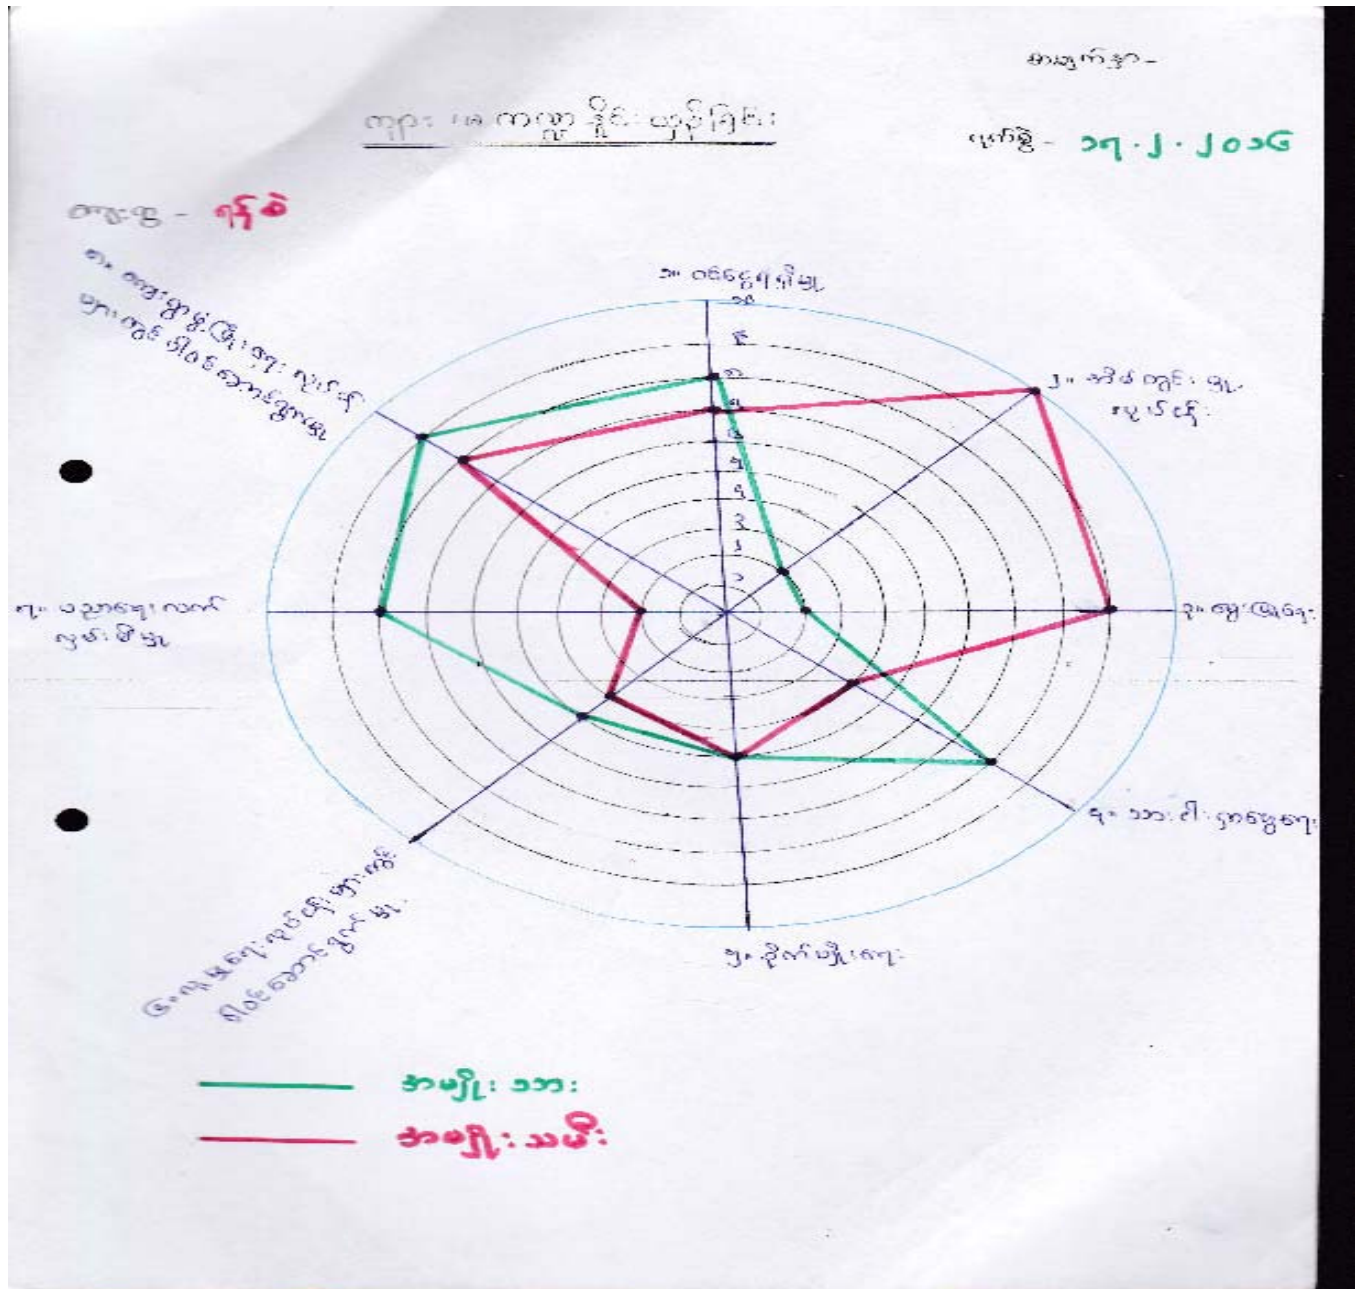 စာရွက်နှာ-
ကျား မ ကဏ္ဍ နှိုင်းယှဉ်ခြင်း
ရက်စွဲ - ၁၇.၂.၂၀၁၆
ကျေးရွာ -
၁။ ဝင်ငွေရရှိမှု
၁၀
၉
၈
၇
၆
၅
၄
၃
၂
၁
၂။ အိမ်တွင်းမှု
လုပ်ငန်း
၃။ မွေးမြူရေး
၄။ သား ငါး ရှာဖွေရေး
၅။ စိုက်ပျိုးရေး
၆။ လူမှုရေးလုပ်ငန်းများတွင်
ပါဝင်ဆောင်ရွက်မှု
၇။ ပညာရေး လက်
လှမ်းမီမှု
၈။ ကျေးရွာဖွံ့ဖြိုးရေး လုပ်ငန်း
များတွင် ပါဝင်ဆောင်ရွက်မှု
အမျိုးသား
အမျိုးသမီး